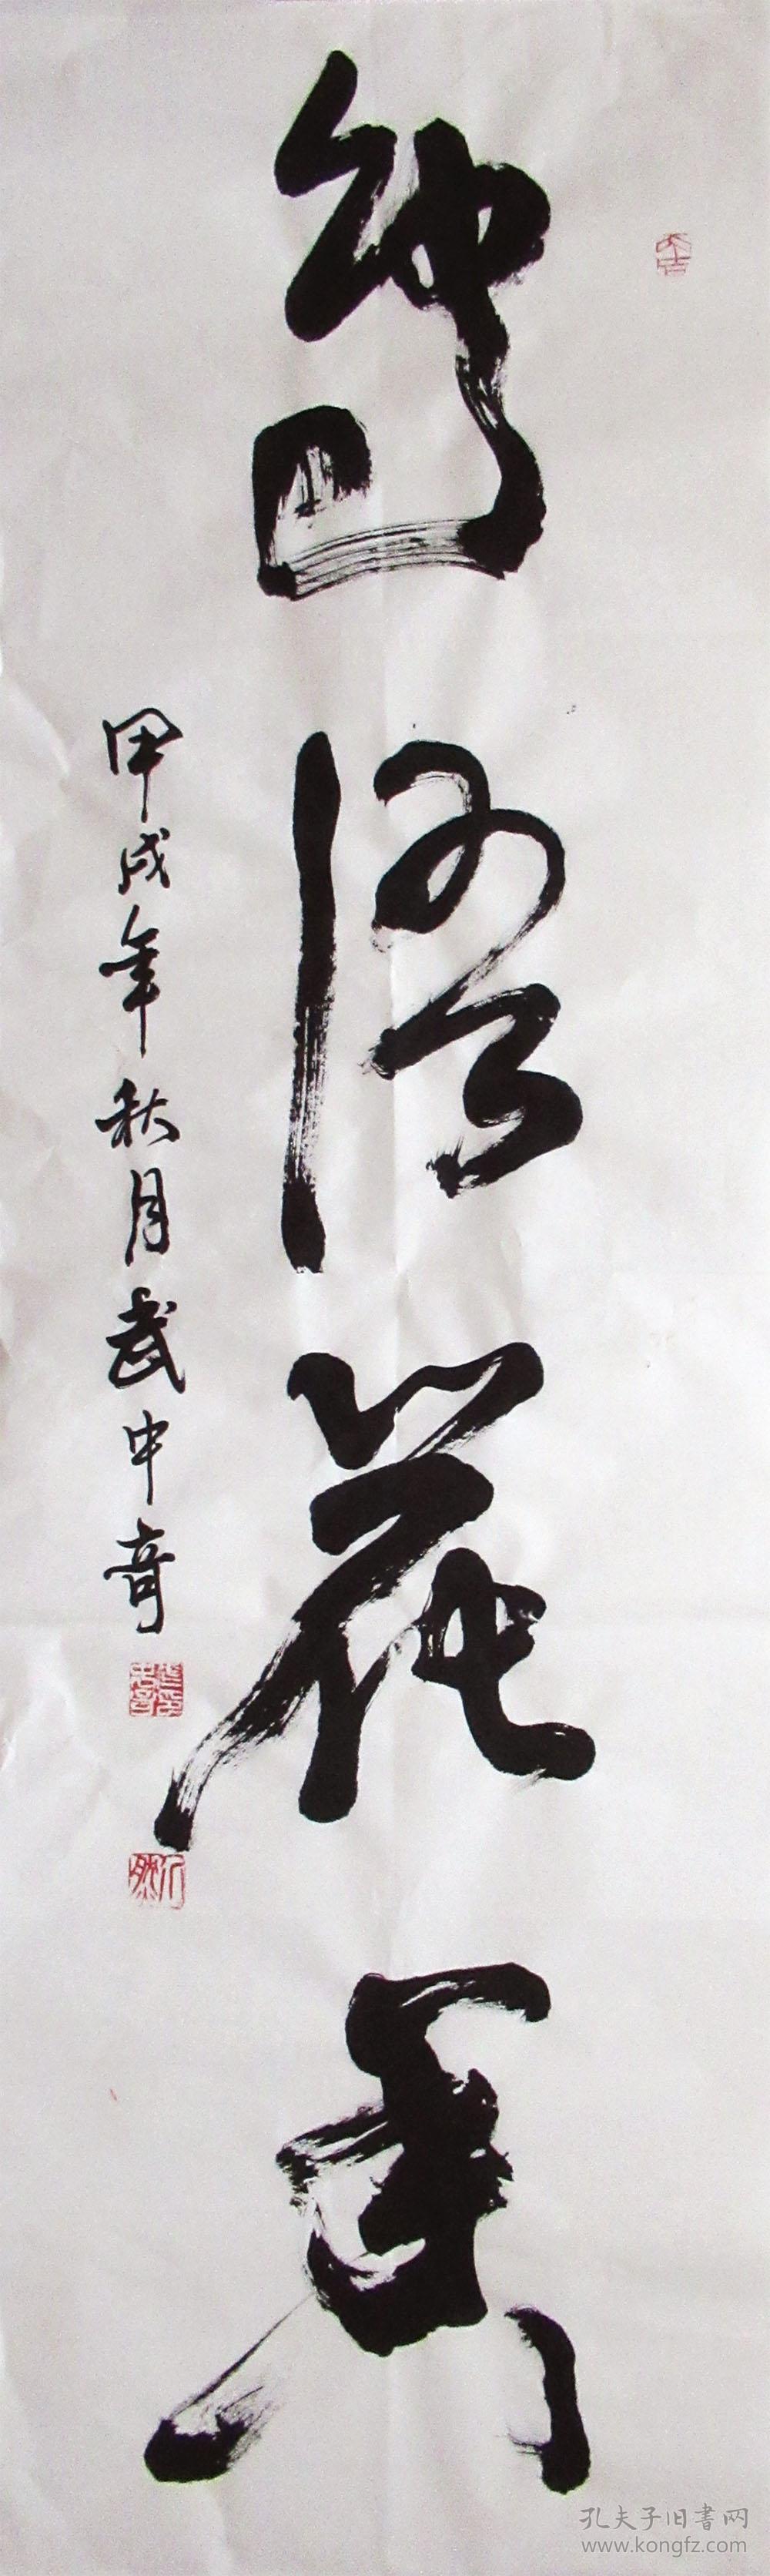 鸟语花香
甲戌年秋月武中奇
孔夫子旧書网
www.kongfz.com